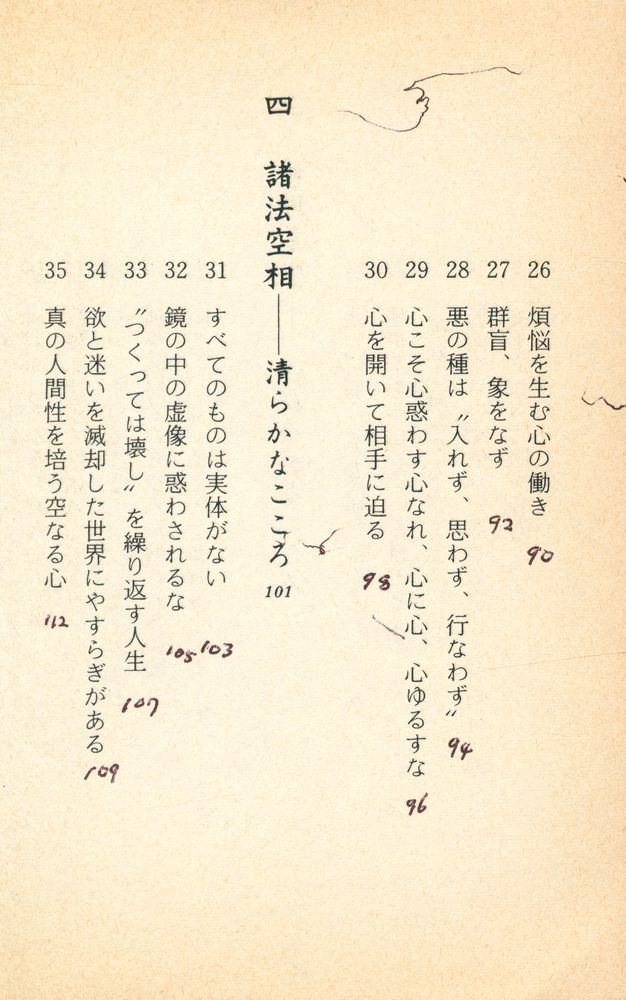 26 煩悩を生む心の働き 90
27 群盲、象をなず 92
28 悪の種は〝入れず、思わず、行なわず〟 94
29 心こそ心惑わす心なれ、心に心、心ゆるすな 96
30 心を開いて相手に迫る 98
四 諸法空相――清らかなこころ 101
31 すべてのものは実体がない 103
32 鏡の中の虚像に惑わされるな 105
33 〝つくっては壊し〟を繰り返す人生 107
34 欲と迷いを滅却した世界にやすらぎがある 109
35 真の人間性を培う空なる心 112